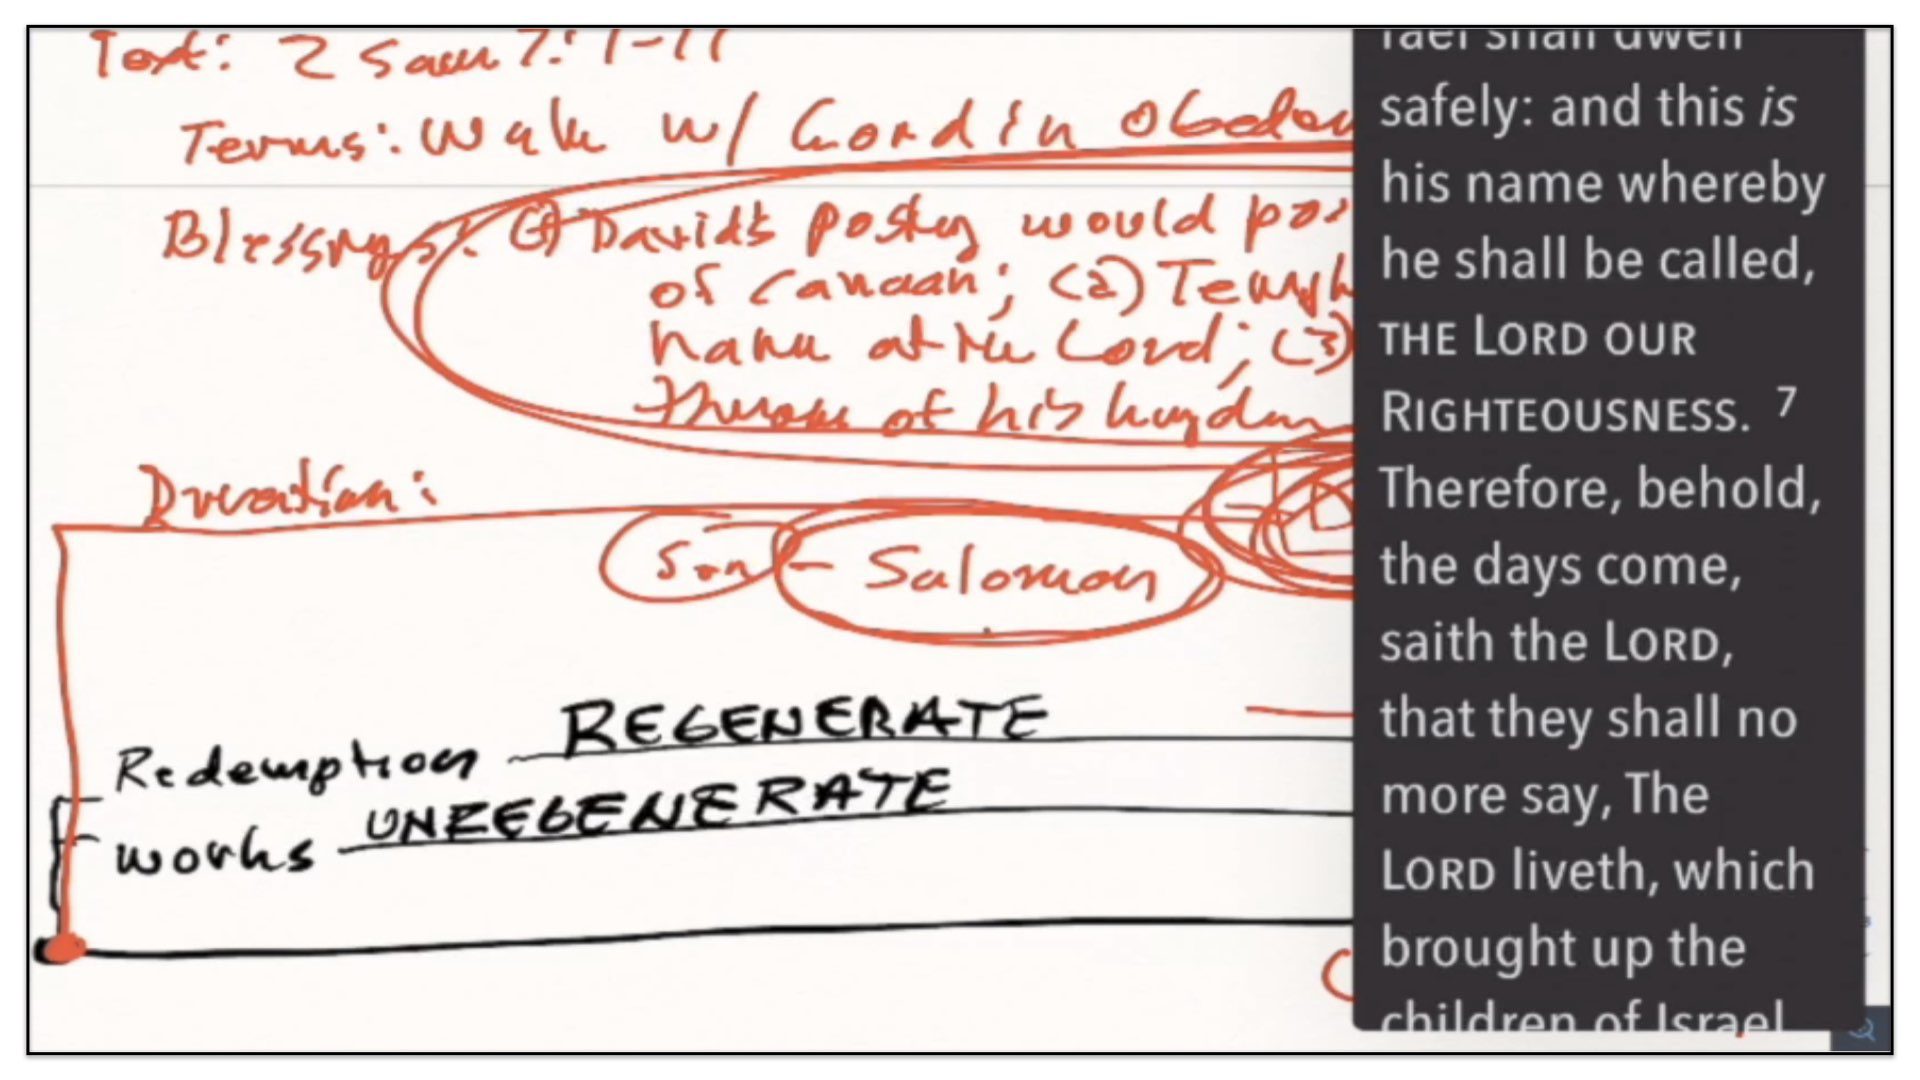 Text: 2 Sam 7:1-17
Terms: Walk w/ Lord in
Blessings: (1) David's would
of Canaan; (2)
name of the Lord; (3)
throne of his
Duration:
Son - Solomon
Redemption REGENERATE
Works UNREGENERATE
rael shall dwell
safely: and this is
his name whereby
he shall be called,
THE LORD OUR
RIGHTEOUSNESS. 7
Therefore, behold,
the days come,
saith the LORD,
that they shall no
more say, The
LORD liveth, which
brought up the
children of Israel